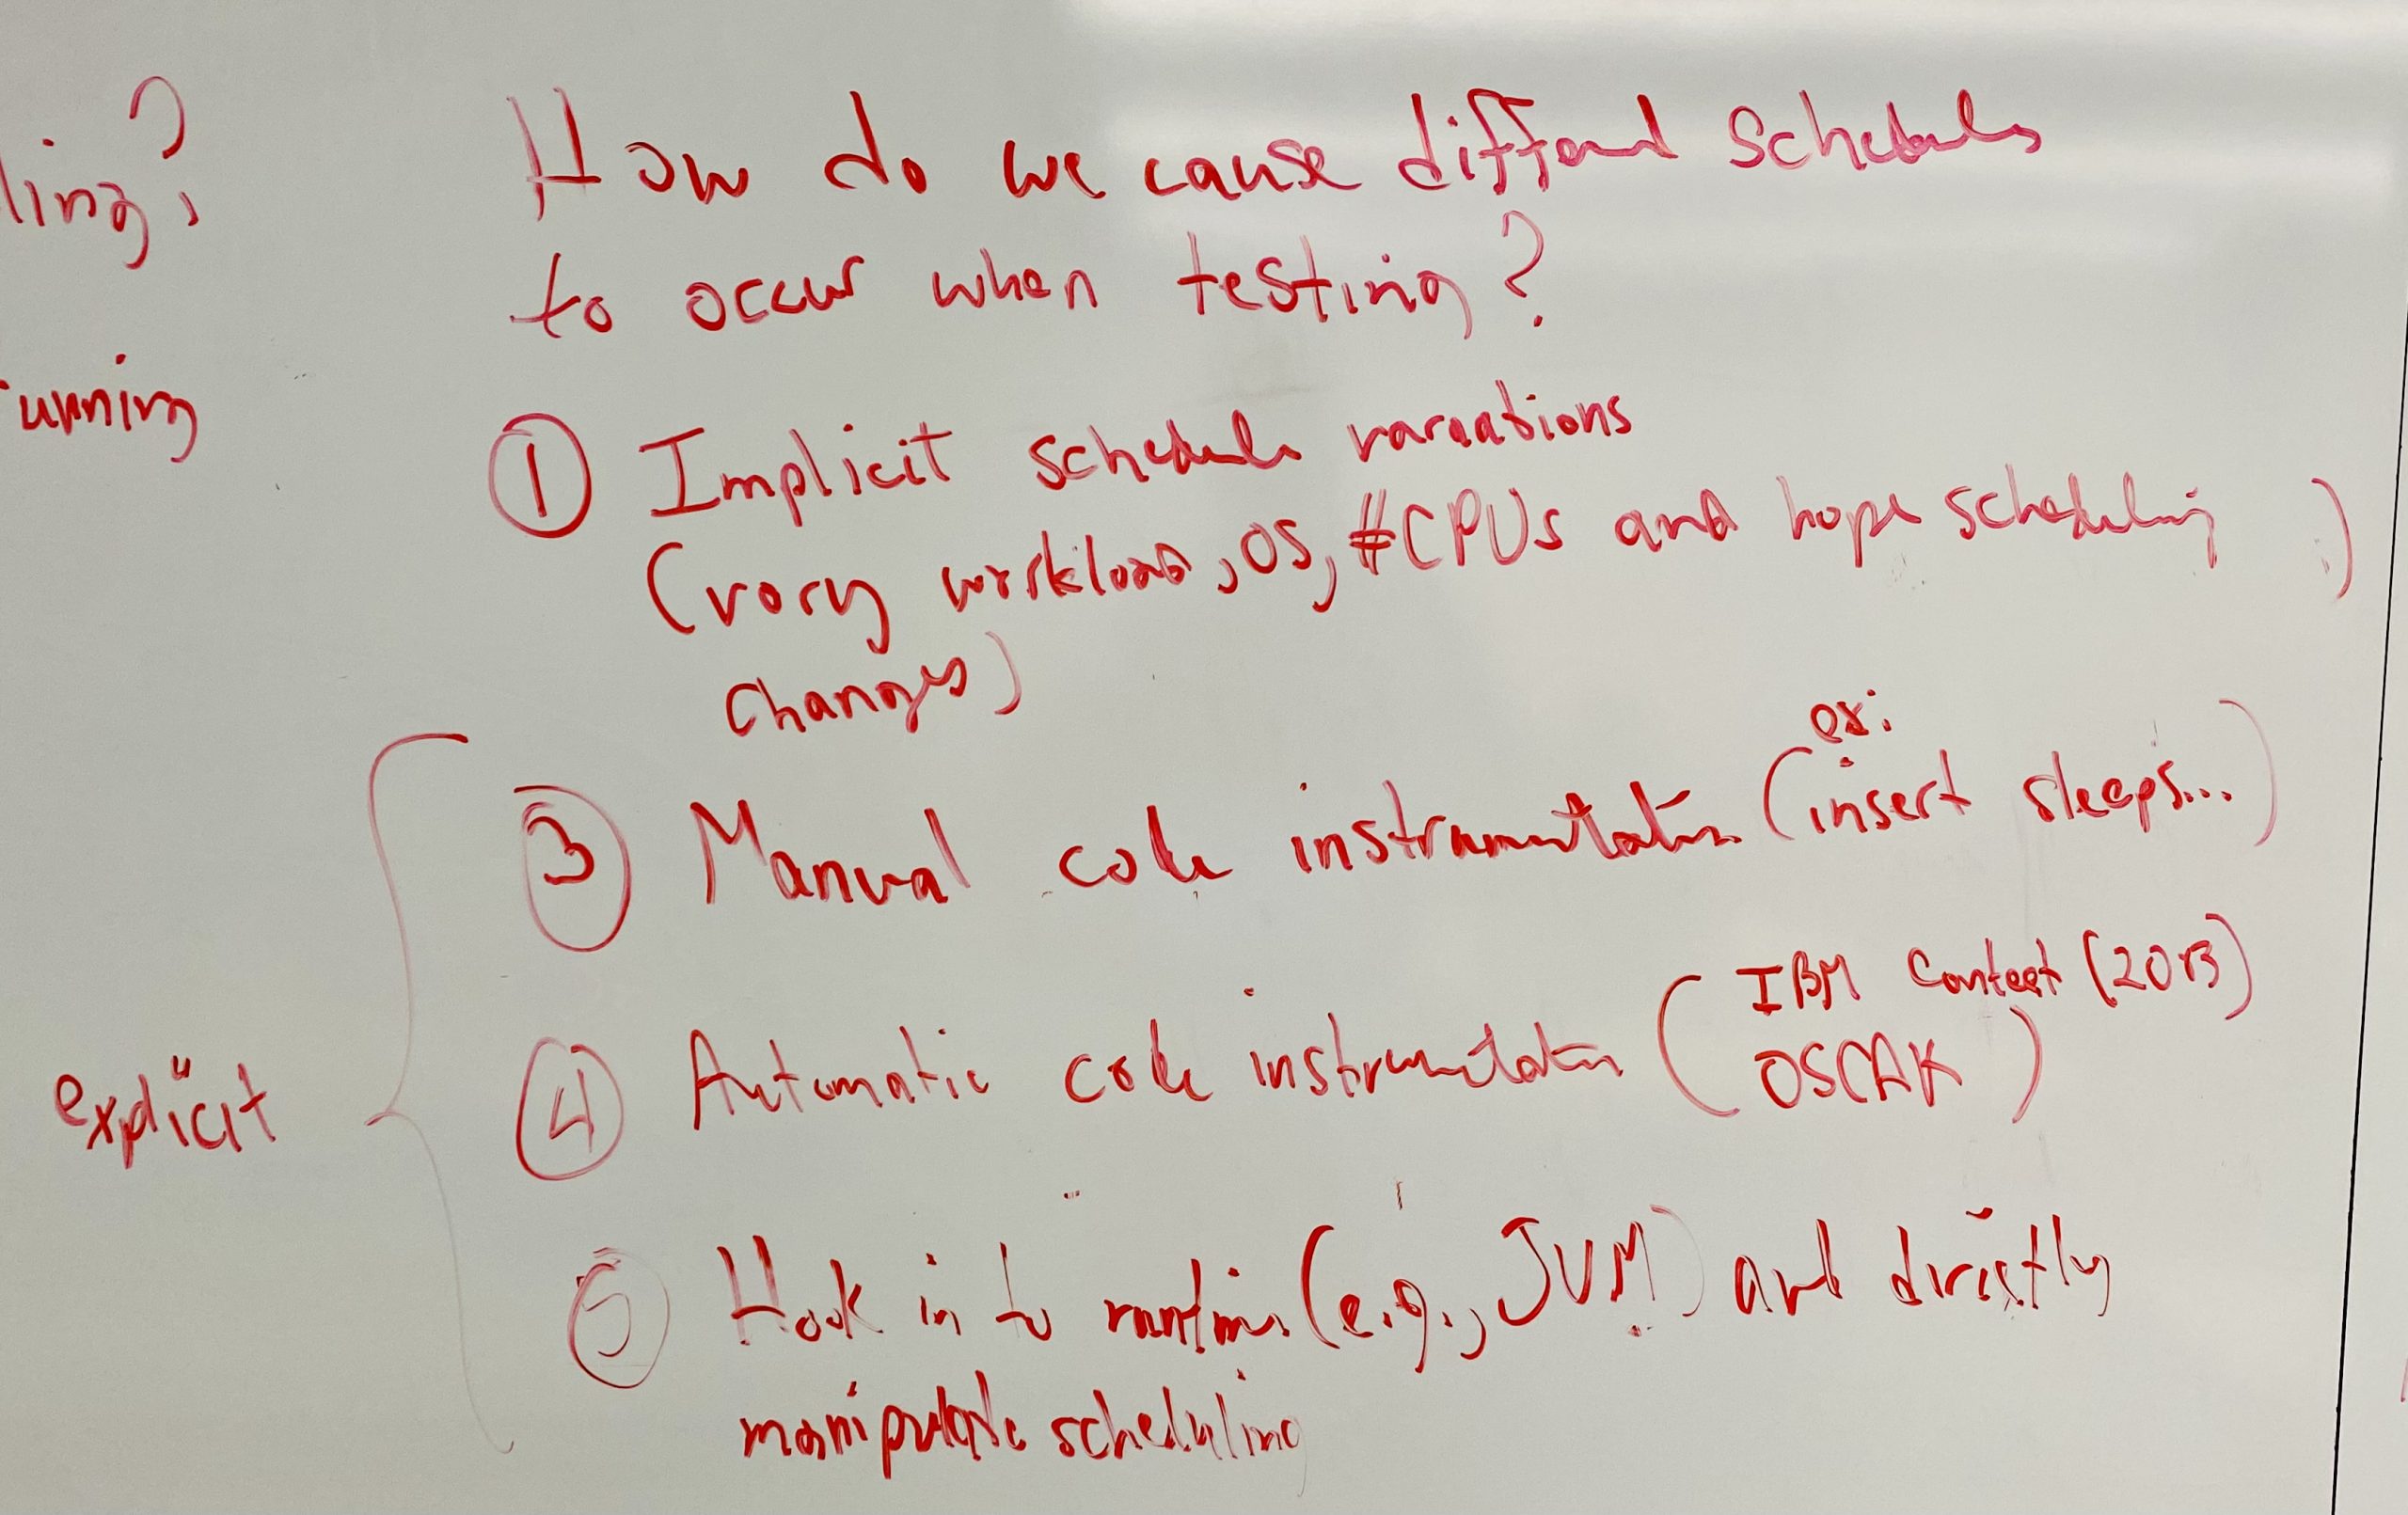 ling?
How do we cause different schedules
to occur when testing?
unning
① Implicit schedule variations
(vary workload, OS, #CPUs and hope scheduling
changes)
ex:
③ Manual code instrumentation (insert sleeps...)
IBM Contest (2013)
④ Automatic code instrumentation ( OSCAR )
explicit
⑤ Hook in to runtime (e.g., JVM) and directly
manipulate scheduling